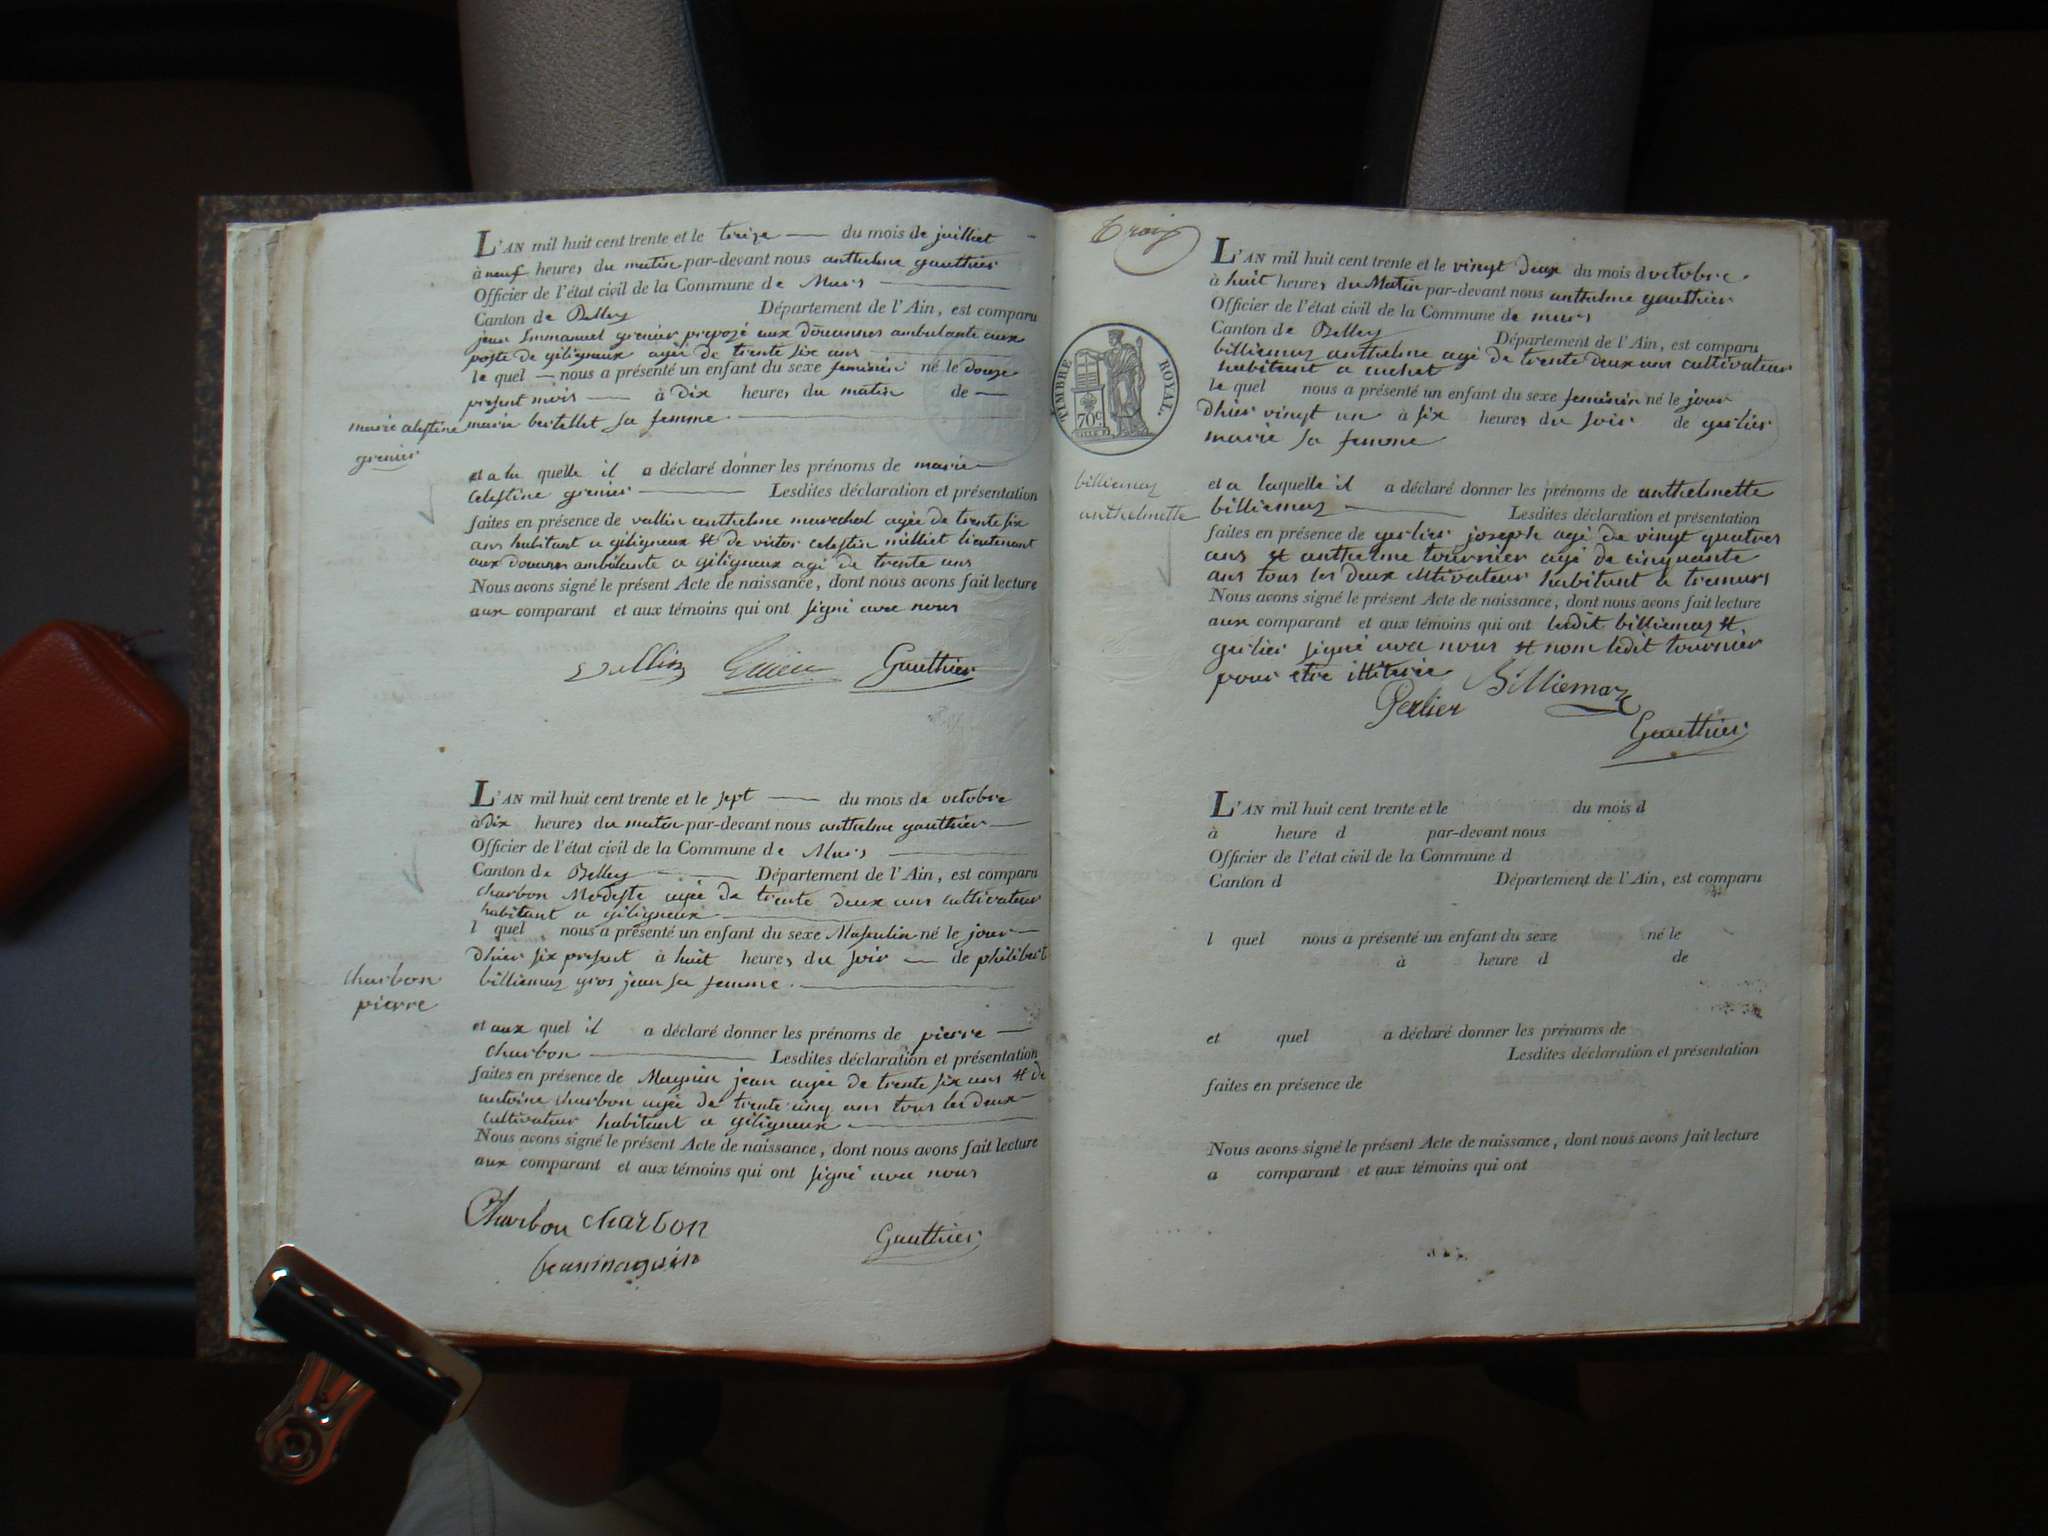 L'AN mil huit cent trente et le treize du mois de juilliet
à neuf heures du matin par-devant nous anthelme gauthier
Officier de l'état civil de la Commune de Murs
Canton de Belley Département de l'Ain, est comparu
jean Emmanuel grenier preposé aux douannes ambulante aux
poste de giligneux agée de trente six ans
le quel nous a présenté un enfant du sexe feminin né le douze
present mois à dix heures du matin de
marie bertellet sa femme
marie celestine
grenier
et a la quelle il a déclaré donner les prénoms de marie
celestine grenier Lesdites déclaration et présentation
faites en présence de vallin anthelme marechal agée de trente six
ans habitant a giligneux et de victor celestin milliet lieutenant
aux douanes ambulante a giligneux agé de trente ans
Nous avons signé le présent Acte de naissance, dont nous avons fait lecture
aux comparant et aux témoins qui ont signé avec nous
Vallin Grenier Gauthier
L'AN mil huit cent trente et le sept du mois de octobre
à dix heures du matin par-devant nous anthelme gauthier
Officier de l'état civil de la Commune de Murs
Canton de Belley Département de l'Ain, est comparu
charbon Modeste agée de trente deux ans cultivateur
habitant a giligneux
l quel nous a présenté un enfant du sexe Masculin né le jour
dhier six present à huit heures du soir de philiberte
billiemaz gros jean sa femme
charbon
pierre
et aux quel il a déclaré donner les prénoms de pierre
charbon Lesdites déclaration et présentation
faites en présence de Magnin jean agée de trente six ans et de
antoine charbon agée de trente cinq ans tous les deux
cultivateur habitant a giligneux
Nous avons signé le présent Acte de naissance, dont nous avons fait lecture
aux comparant et aux témoins qui ont signé avec nous
Charbon charbon Gauthier
jean magnin
Trois
L'AN mil huit cent trente et le vingt deux du mois d octobre
à huit heures du Matin par-devant nous anthelme gauthier
Officier de l'état civil de la Commune de murs
Canton de Belley Département de l'Ain, est comparu
billiemaz anthelme agé de trente deux ans cultivateur
habitant a cuchet
le quel nous a présenté un enfant du sexe feminin né le jour
dhier vingt un à six heures du soir de gerlier
marie sa femme
TIMBRE ROYAL.
70c
billiemaz
anthelmette
et a laquelle il a déclaré donner les prénoms de anthelmette
billiemaz Lesdites déclaration et présentation
faites en présence de gerlier joseph agé de vingt quatres
ans et anthelme tournier agé de cinquante
ans tous les deux cultivateur habitant a tremurs
Nous avons signé le présent Acte de naissance, dont nous avons fait lecture
aux comparant et aux témoins qui ont ledit billiemaz et
gerlier signé avec nous et nom ledit tournier
pour etre illiterée
Gerlier Billiemaz
Gauthier
L'AN mil huit cent trente et le du mois d
à heure d par-devant nous
Officier de l'état civil de la Commune d
Canton d Département de l'Ain, est comparu
l quel nous a présenté un enfant du sexe né le
à heure d de
et quel a déclaré donner les prénoms de
Lesdites déclaration et présentation
faites en présence de
Nous avons signé le présent Acte de naissance, dont nous avons fait lecture
a comparant et aux témoins qui ont